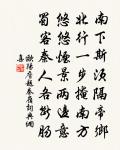 南下斯須隔帝鄉
北行一步掩南方
悠悠煙景兩邊意
蜀客秦人各斷腸
歐陽詹題秦嶺詞典網
集